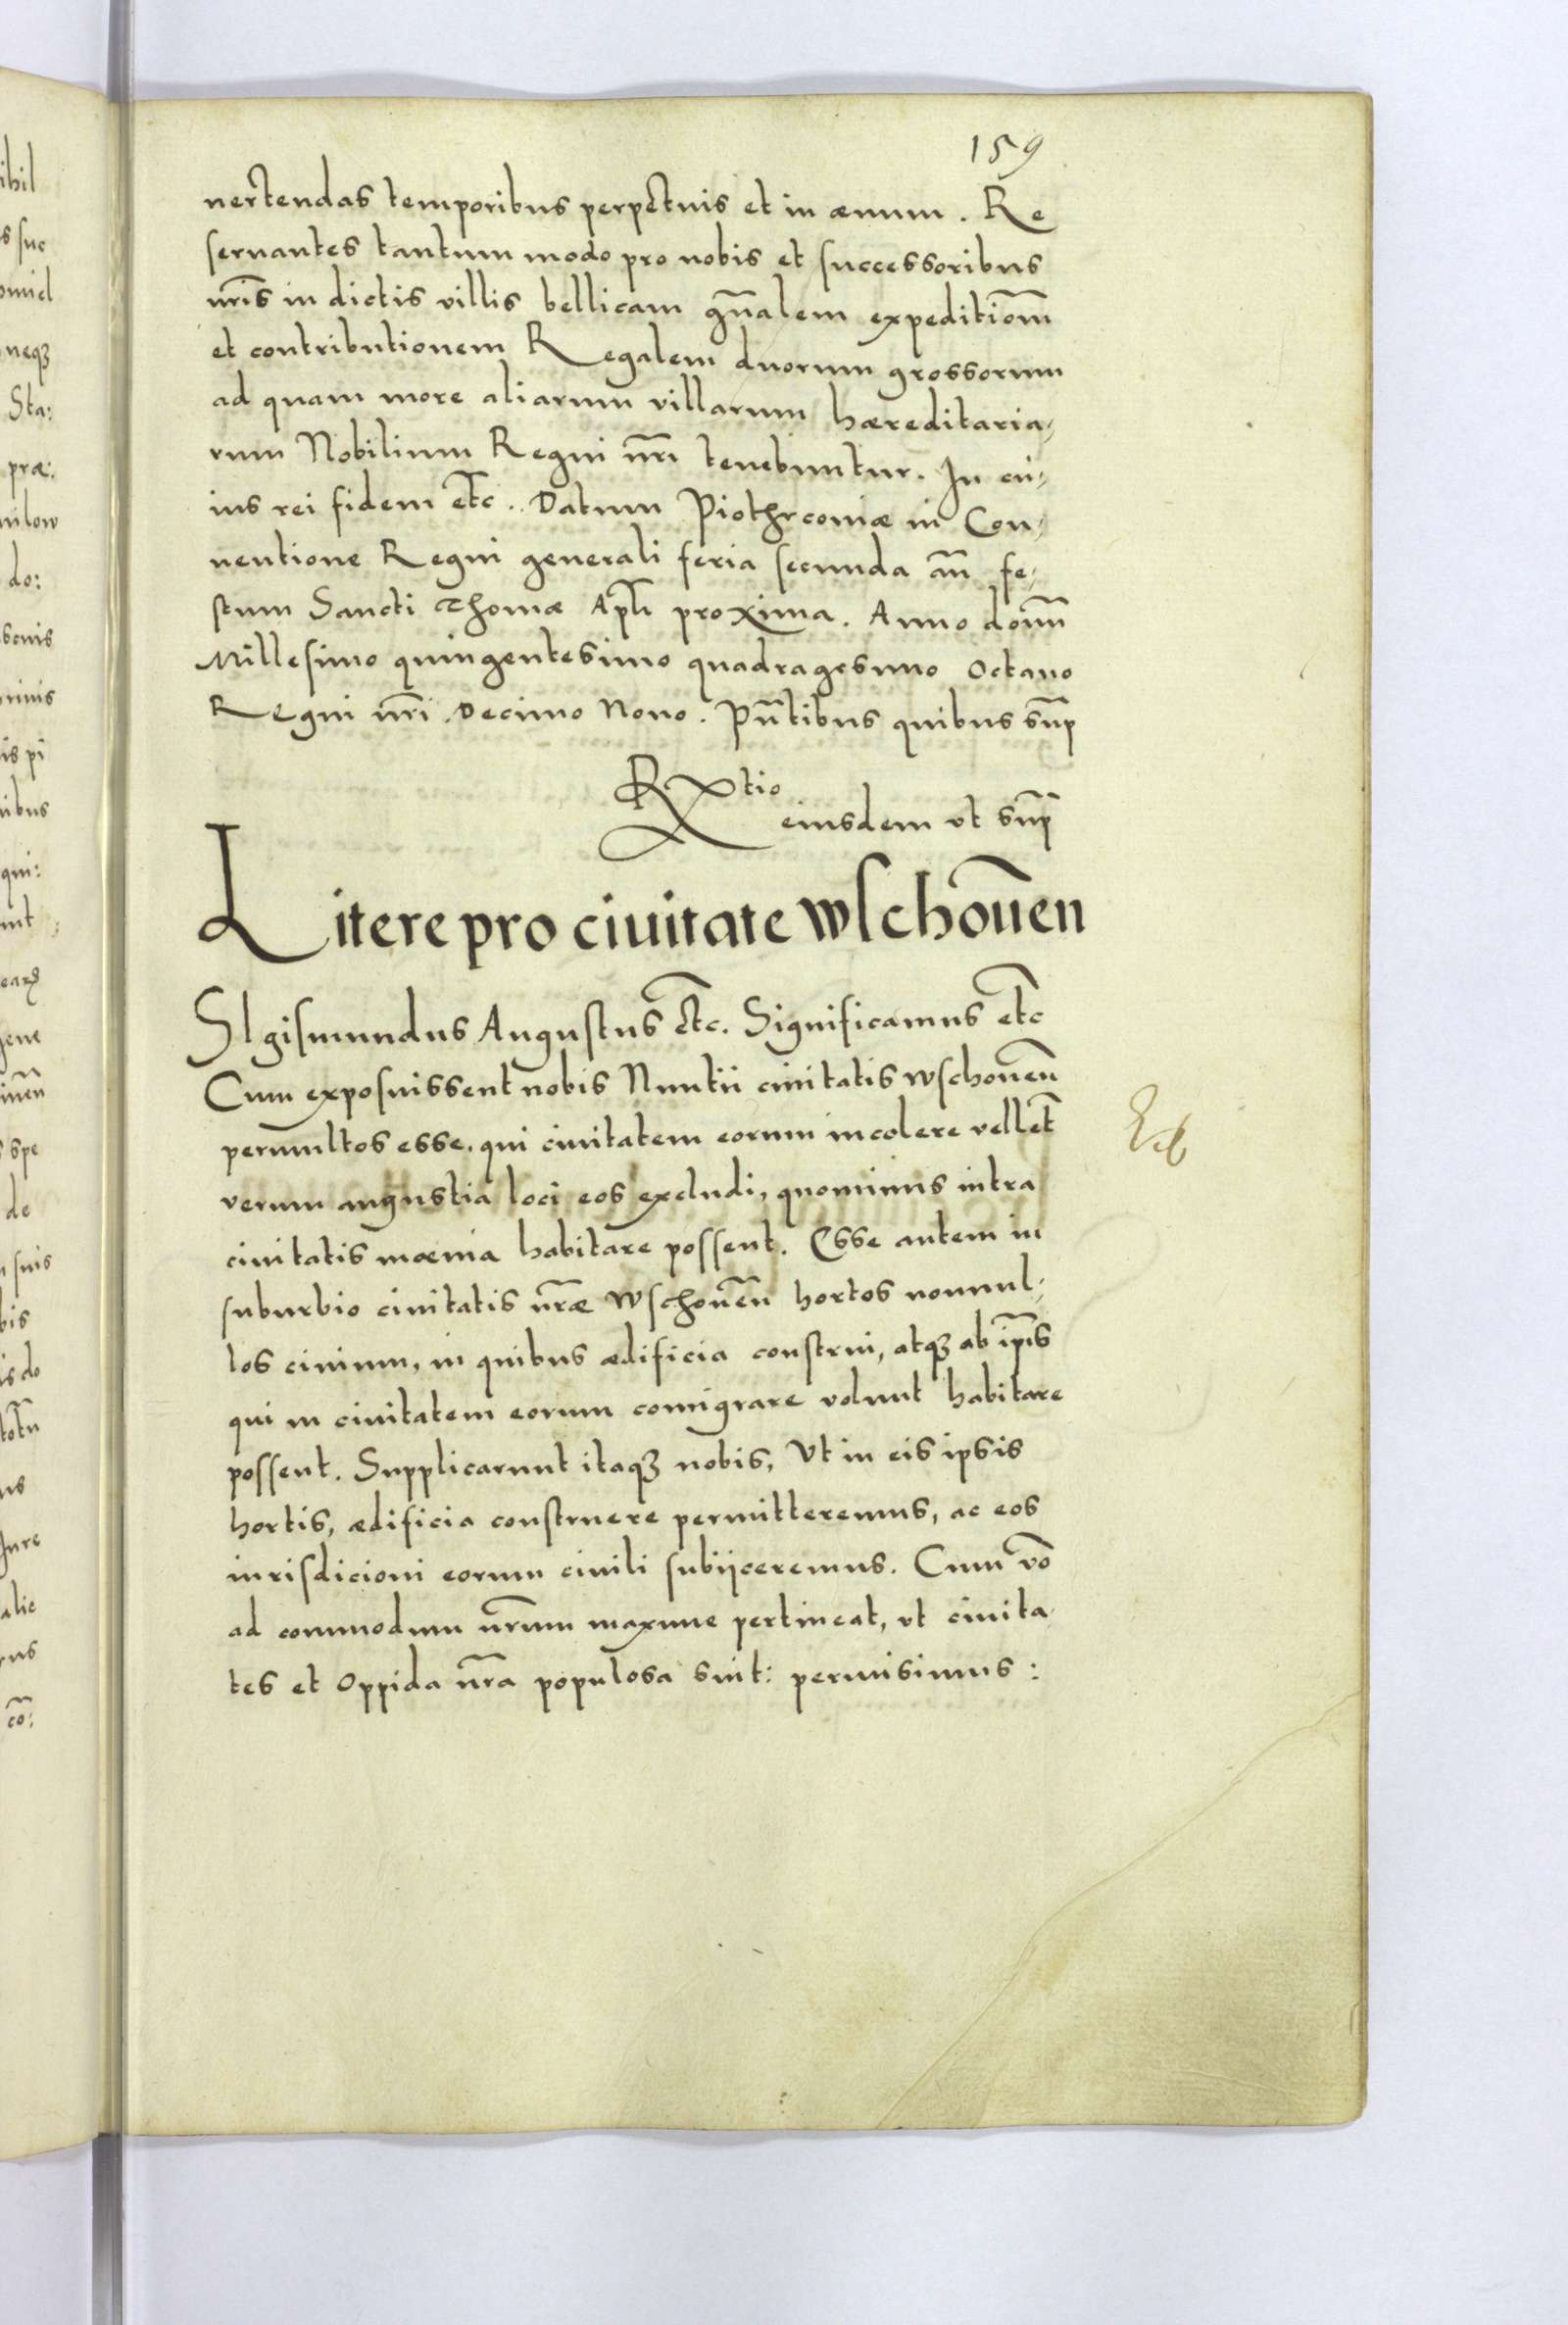 159
uertendas temporibus perpetuis et in æuum. Re
seruantes tantum modo pro nobis et successoribus
nr̃is in dictis villis bellicam gñalem expeditiom̃
et contributionem Regalem duorum grossorum
ad quam more aliarum villarum hæreditaria-
rum Nobilium Regni nr̃i tenebuntur. In cu-
ius rei fidem etc̃. Datum Piothrconiæ in Con-
uentione Regni generali feria secunda añ fe-
stum Sancti Thomæ Apl̃i proxima. Anno domĩ
Millesimo quingentesimo quadragesimo Octauo
Regni nr̃i Decimo Nono. Pñtibus quibus sup̃
Rtio
eiusdem vt sup̃
Litere pro ciuitate wschoueñ
SIgismundus Augustus etc̃. Significamus etc̃
Cum exposuissent nobis Nuntii ciuitatis wschoueñ
permultos esse, qui ciuitatem eorum incolere vellet̃
verum angustia loci eos excludi, quominus intra
ciuitatis mœnia habitare possent. Esse autem in
suburbio ciuitatis nr̃æ wschoueñ hortos nonnul-
los ciuium, in quibus ædificia construi, atqꝫ ab ip̃is
qui in ciuitatem eorum comigrare volunt habitare
possent. Supplicarunt itaqꝫ nobis, Vt in eis ipsis
hortis, ædificia construere permitteremus, ac eos
iurisdicioni eorum ciuili subijceremus. Cum vo᷃
ad commodum nr̃um maxime pertineat, vt ciuita-
tes et Oppida nr̃a populosa sint: permisimus: